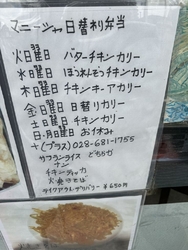 マニーシャ日替り弁当
火曜日 バターチキンカリー
水曜日 ほうれんそうチキンカリー
木曜日 チキンキーアカリー
金曜日 日替りカリー
土曜日 チキンカリー
日・月曜日 おイオね
十(プラス) 028-681-1755
サフランライス どちらか
ナン
チキンティッカ
火奥のそば
テイクアウト、デリバリー ￥650円